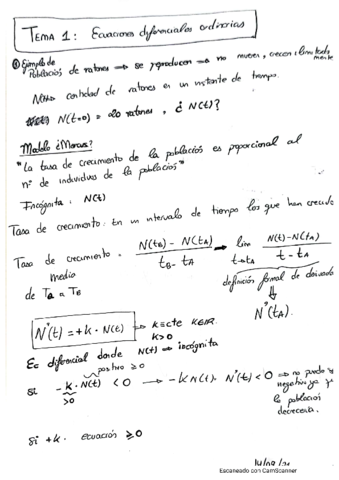 TEMA 1: Ecuaciones diferenciales ordinarias
Ejemplo de
Población de ratones → se reproducen → no mueren, crecen ilimitadamente
N(t) = cantidad de ratones en un instante de tiempo.
N(t=0) = 20 ratones, ¿N(t)?
Modelo
"La tasa de crecimiento de la población es proporcional al
nº de individuos de la población"
Incógnita: N(t)
Tasa de crecimiento: En un intervalo de tiempo los que han crecido
Tasa de crecimiento = N(tB) - N(tA) / tB - tA → lim t→tA N(t) - N(tA) / t - tA
medio
de TA a TB
definición formal de derivada
N'(tA).
N'(t) = +k · N(t) → K ∈ cte K∈ℝ.
K>0
Ec diferencial donde N(t) → incógnita
positivo ≥0
si -k · N(t) < 0 → -k N(t). N'(t) < 0 → no puede
>0
negativo ya
la población
decrecería.
si +k. ecuación ≥ 0
Escaneado con CamScanner